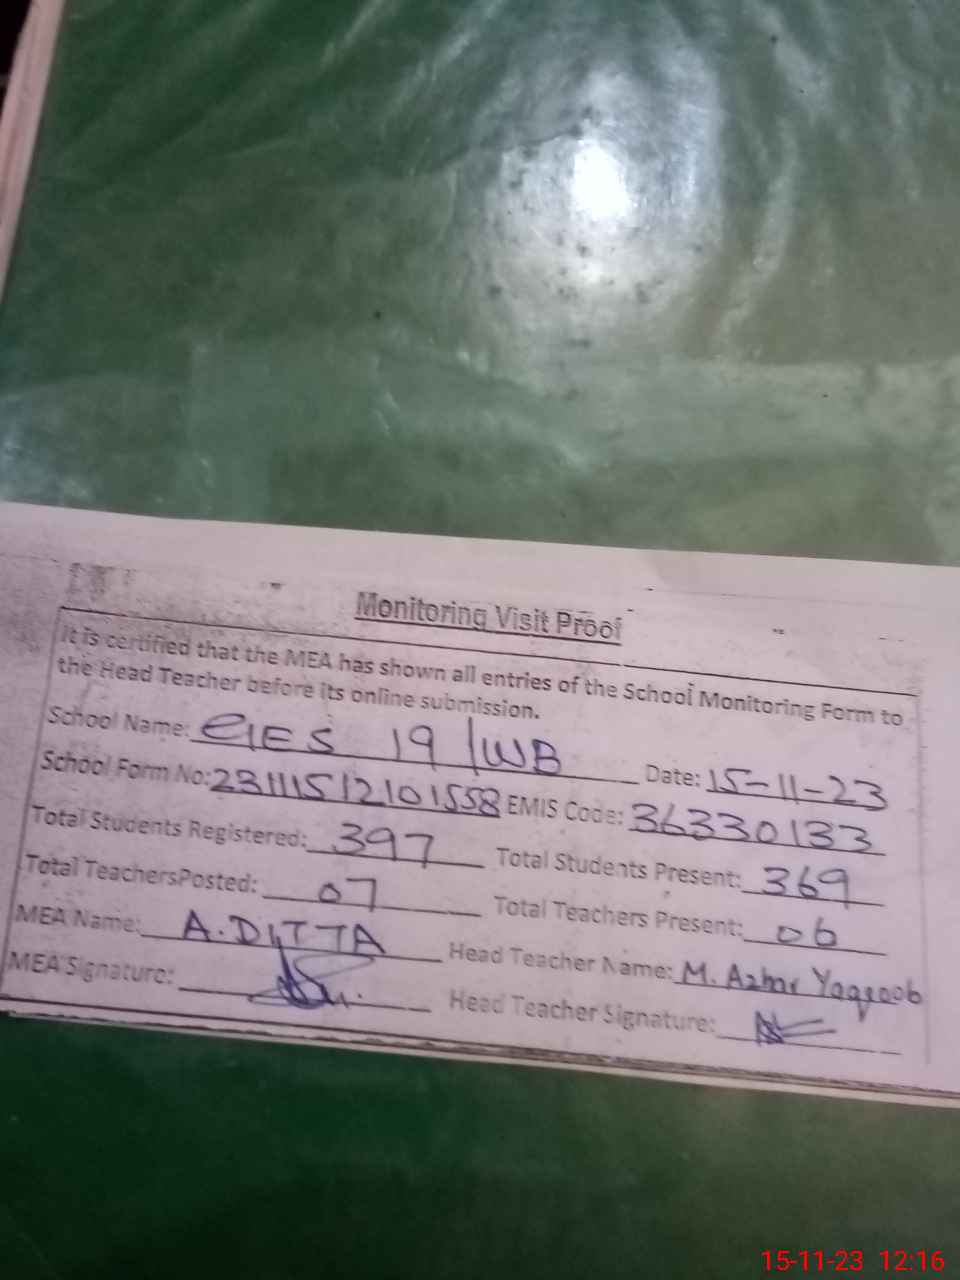 Monitoring Visit Proof
It is certified that the MEA has shown all entries of the School Monitoring Form to
the Head Teacher before its online submission.
School Name: GES 19/WB Date: 15-11-23
School Form No: 23111512101558 EMIS Code: 36330133
Total Students Registered: 397 Total Students Present: 369
Total TeachersPosted: 07 Total Teachers Present: 06
MEA Name: A.DITTA Head Teacher Name: M. Azhar Yaqoob
MEA Signature: Head Teacher Signature:
15-11-23 12:16